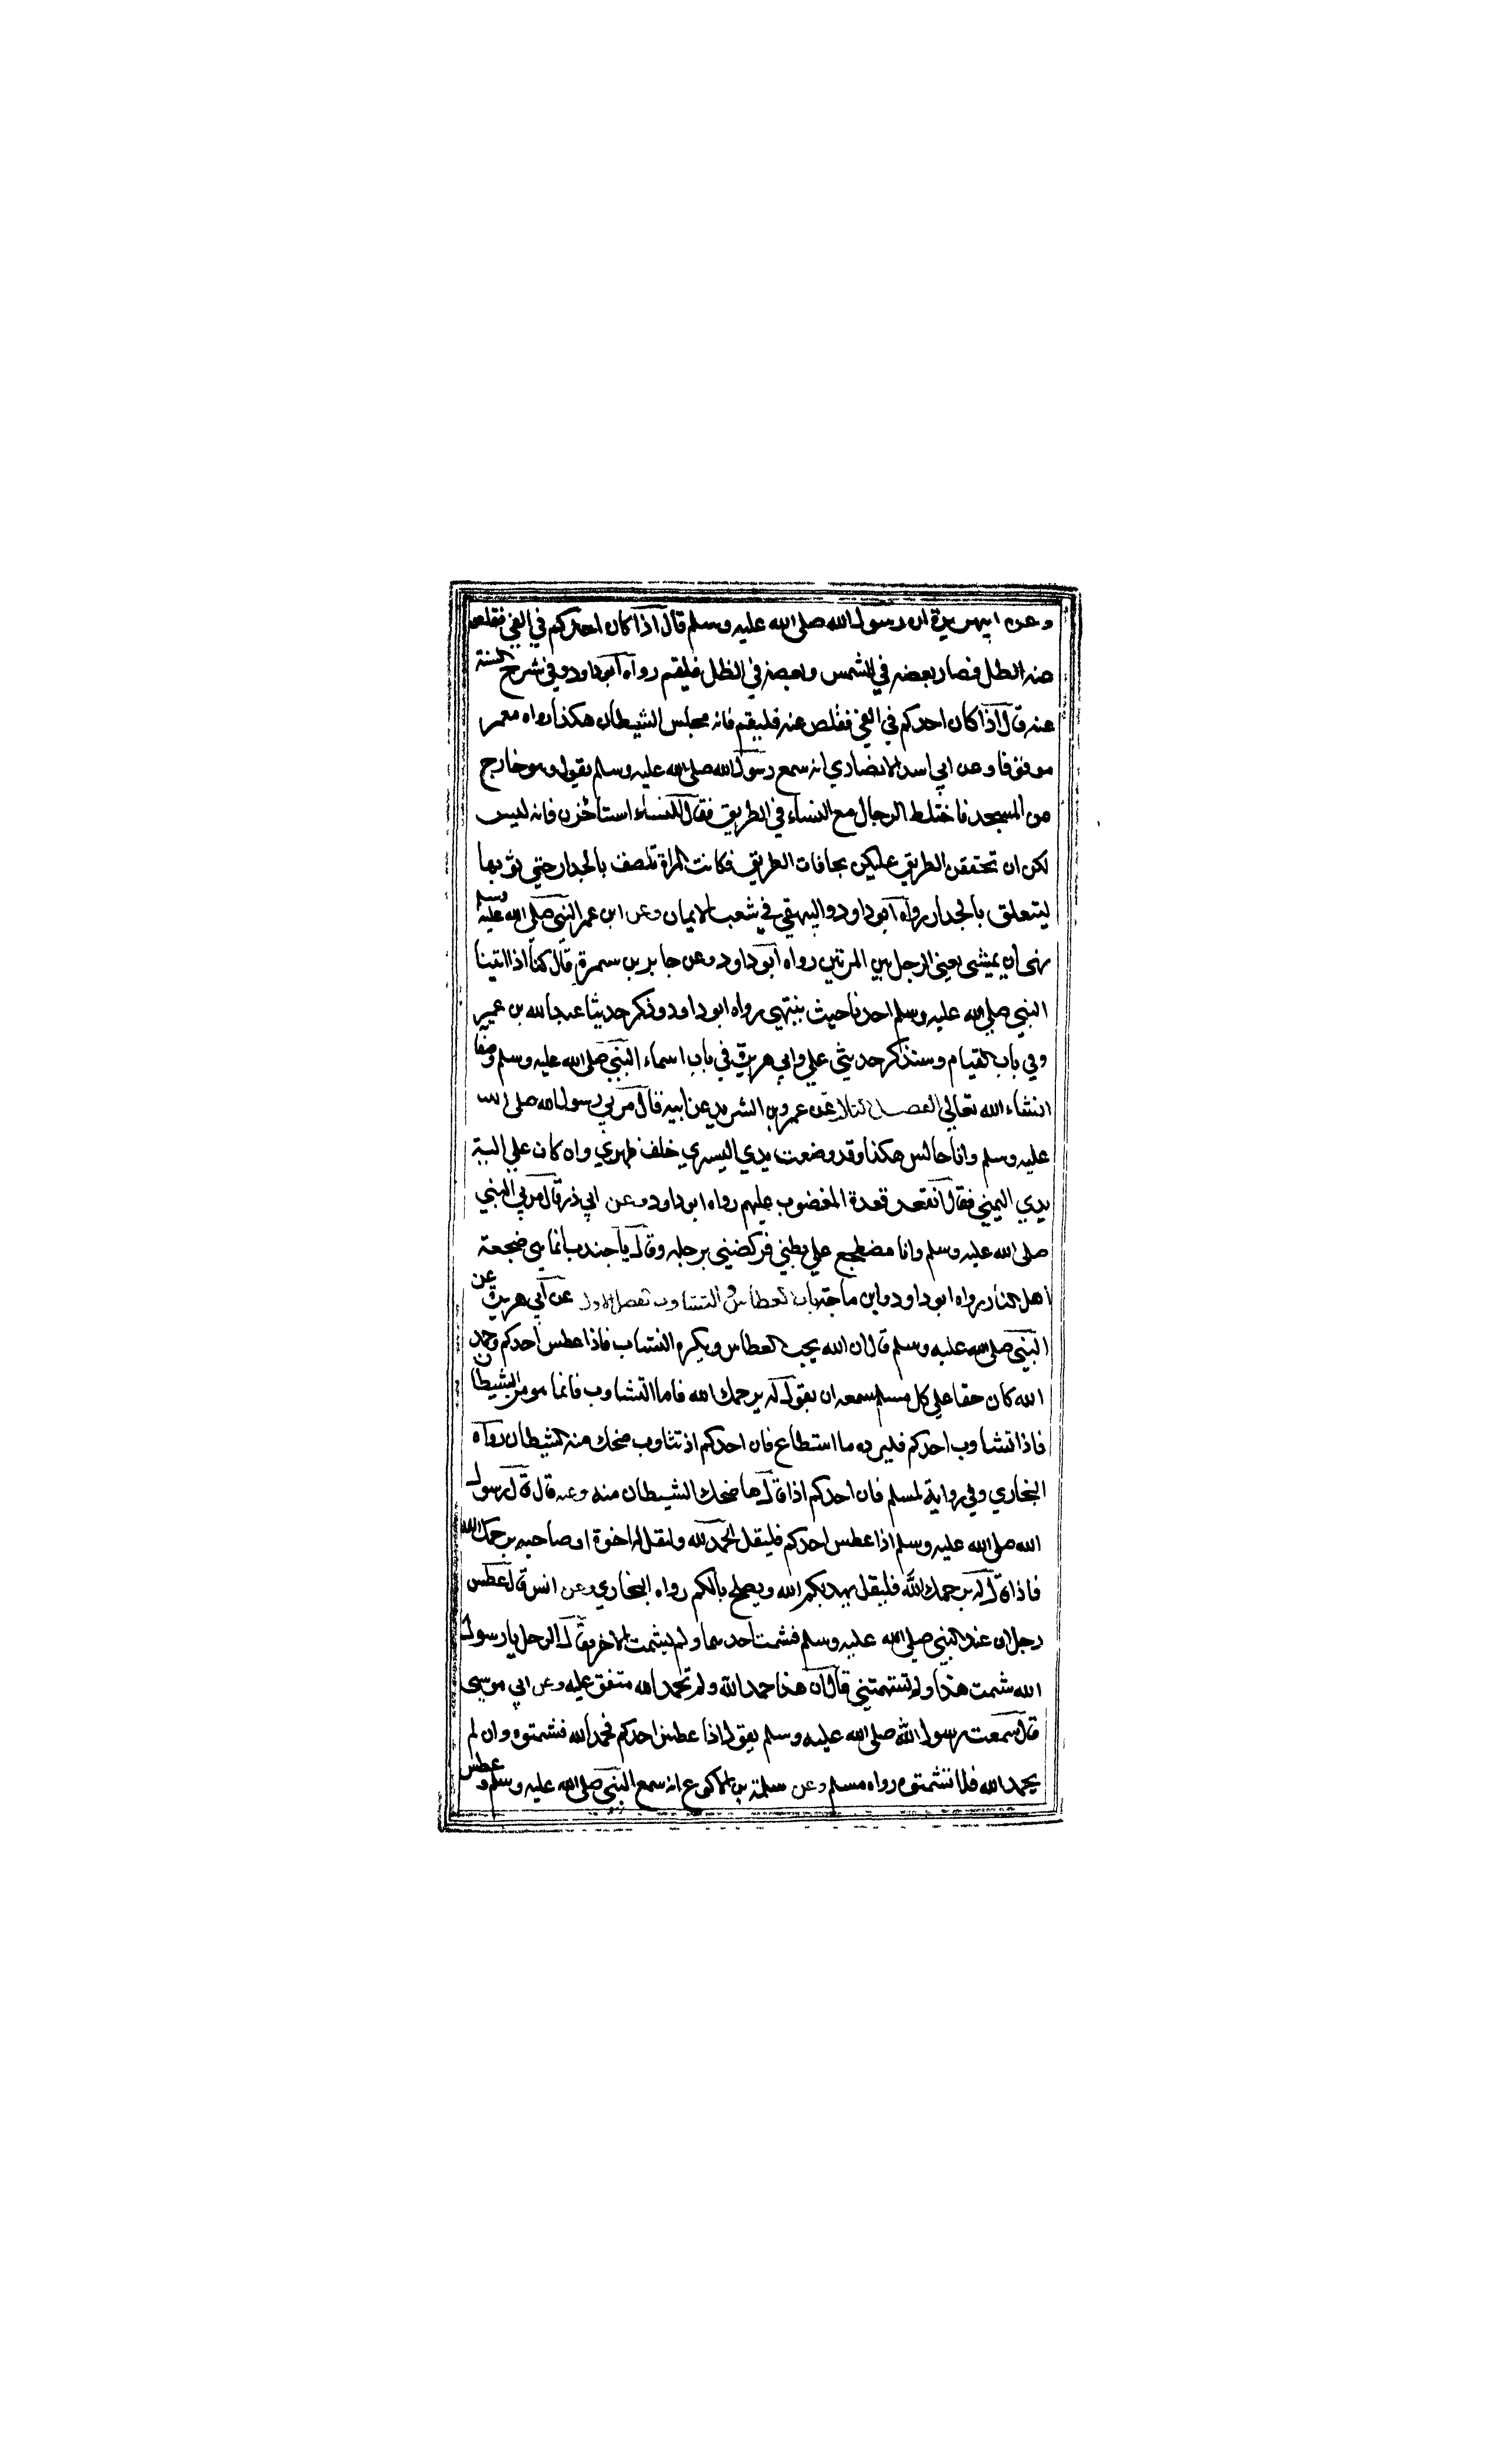 وعن ابيهريرة ان رسول الله صلى الله عليه وسلم قال اذا كان احدكم في الفئ فقلص
عنه الظل فصار بعضه في الشمس وبعضه في الظل فليقم رواه ابوداود وفي شرح السنة
عنه قال اذا كان احدكم في الفئ فقلص عنه فليقم فانه مجلس الشيطان هكذا رواه معمر
موقوفا وعن ابي اسد الانصاري انه سمع رسول الله صلى الله عليه وسلم يقول وهو خارج
من المسجد فاختلط الرجال مع النساء في الطريق فقال للنساء استأخرن فانه ليس
لكن ان تحتققن الطريق عليكن بحافات الطريق فكانت المراة تلصف بالجدار حتي ثوبها
ليتعلق بالجدار رواه ابوداود والبيهقي في شعب الايمان وعن ابن عمر النبي صلى الله عليه وسلم
نهى ان يمشى يعني الرجل بين المرتين رواه ابوداود وعن جابر بن سمرة قال كنا اذا اتينا
النبي صلي الله عليه وسلم احدنا حيث ينتهي رواه ابوداود وذكر حديثا عبدالله بن عمير
وفي باب القيام وسنذكر حديثي علي وابي هريرة في باب اسماء النبي صلى الله عليه وسلم وصفا
انشاء الله تعالي الفصل الثالث عن عمرو بن الشريد عن ابيه قال مر بي رسول الله صلى الله
عليه وسلم وانا جالس هكذا وقد وضعت يدي اليسري خلف ظهري واه كان علي الية
يدي اليمني فقال اتقعد قعدة المغضوب عليهم رواه ابوداود وعن ابي ذر قال مر بي النبي
صلى الله عليه وسلم وانا مضطجع علي بطني فركضني برجله وقال يا جندب انما هي ضجعة
اهل النار رواه ابوداود وابن ماجة باب العطاس والتثاوب الفصل الاول عن ابي هريرة عن
النبي صلى الله عليه وسلم قال ان الله يحب العطاس ويكره التثاب فاذا عطس احدكم وحمد
الله كان حقا علي كل مسلم سمعه ان يقول له يرحمك الله فاما التثاوب فانما هو من الشيطان
فاذا تثاوب احدكم فليرده ما استطاع فان احدكم اذ تثاوب ضحك منه الشيطان رواه
البخاري وفي رواية لمسلم فان احدكم اذا قال ها ضحك الشيطان منه وعنه قال قال رسول
الله صلى الله عليه وسلم اذا عطس احدكم فليقل الحمد لله وليقل له اخوة او صاحبه يرحمك الله
فاذا قال له يرحمك الله فليقل يهديكم الله ويصلح بالكم رواه البخاري وعن انس قال عطس
رجلان عند النبي صلى الله عليه وسلم فشمت احدهما ولم يشمت الاخر فقال الرجل يا رسول
الله شمت هذا ولم تشتمتني قال ان هذا حمد الله ولم تحمد الله متفق عليه وعن ابي موسي
قال سمعت رسول الله صلى الله عليه وسلم يقول اذا عطس احدكم فحمد الله فشمتوه وان لم
يحمد الله فلا تشمتوه رواه مسلم وعن سلمة بن الاكوع انه سمع النبي صلى الله عليه وسلم وعطس